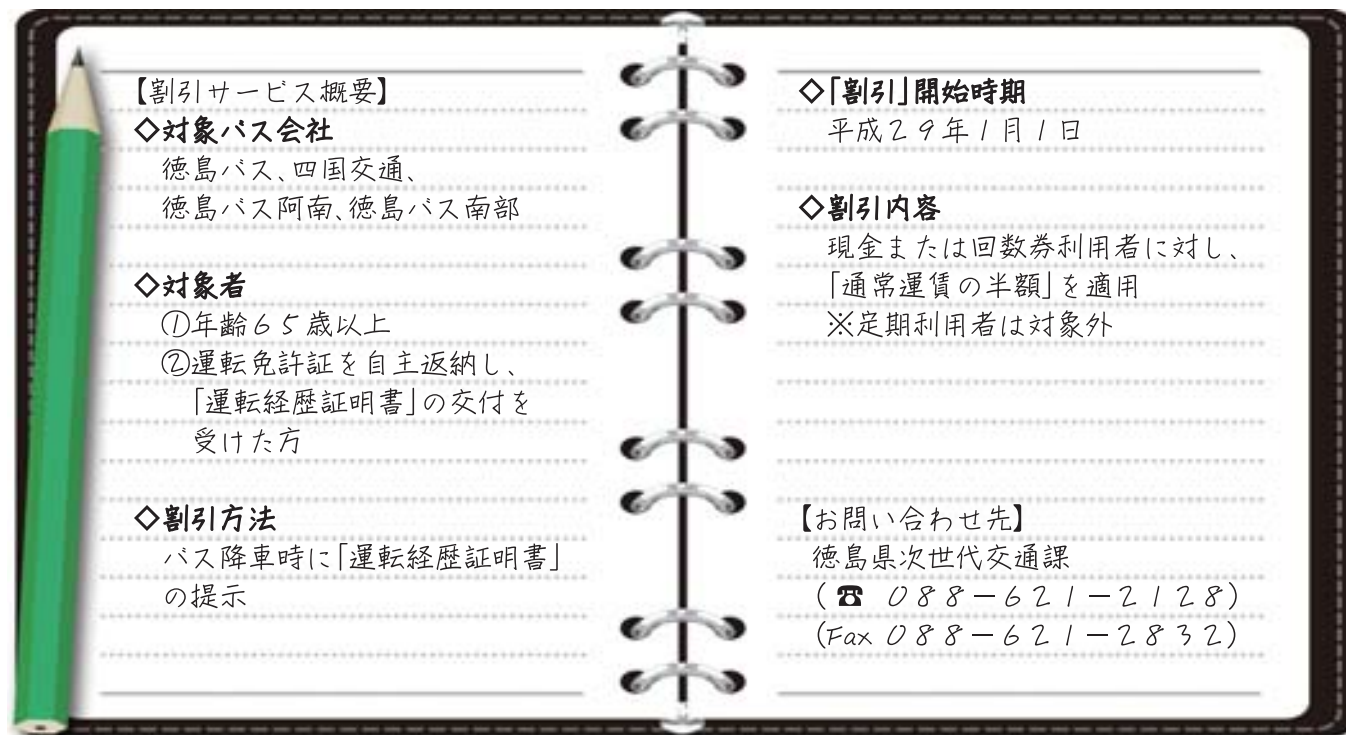 【割引サービス概要】
◇対象バス会社
徳島バス、四国交通、
徳島バス阿南、徳島バス南部
◇対象者
①年齢65歳以上
②運転免許証を自主返納し、
「運転経歴証明書」の交付を
受けた方
◇割引方法
バス降車時に「運転経歴証明書」
の提示
◇「割引」開始時期
平成29年1月1日
◇割引内容
現金または回数券利用者に対し、
「通常運賃の半額」を適用
※定期利用者は対象外
【お問い合わせ先】
徳島県次世代交通課
(☎ 088-621-2128)
(Fax 088-621-2832)